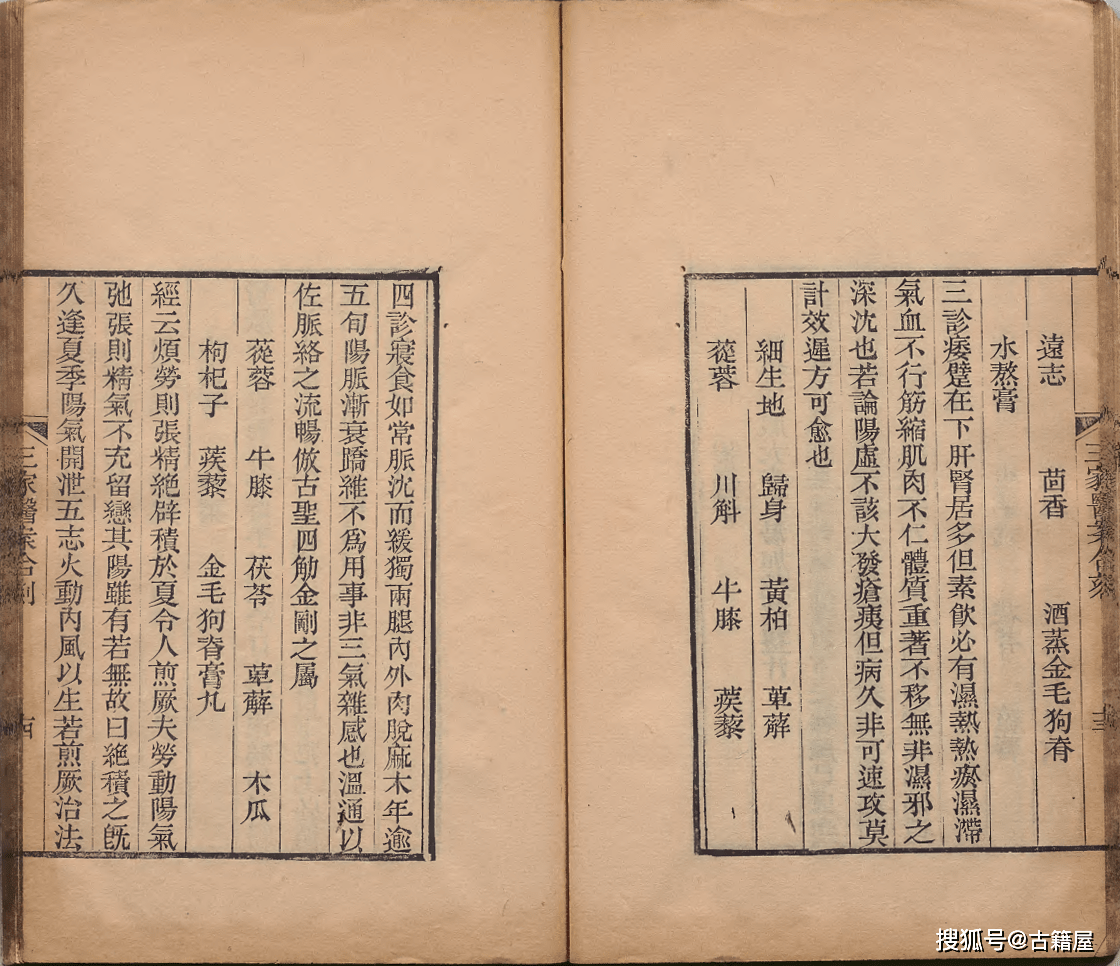 三家醫案合刻
十三
遠志　茴香　酒蒸金毛狗脊
水熬膏
三診痿躄在下肝腎居多但素飲必有濕熱熱瘀濕滯
氣血不行筋縮肌肉不仁體質重著不移無非濕邪之
深沈也若論陽虛不該大發瘡痍但病久非可速攻莫
計效遲方可愈也
細生地　歸身　黃柏　萆薢
蓯蓉　川斛　牛膝　蒺藜
四診寢食如常脈沈而緩獨兩腿內外肉脫麻木年逾
五旬陽脈漸衰蹻維不爲用事非三氣雜感也溫通以
佐脈絡之流暢倣古聖四觔金剛之屬
蓯蓉　牛膝　茯苓　萆薢　木瓜
枸杞子　蒺藜　金毛狗脊膏丸
經云煩勞則張精絕辟積於夏令人煎厥夫勞動陽氣
弛張則精氣不充留戀其陽雖有若無故曰絕積之旣
久逢夏季陽氣開泄五志火動內風以生若煎厥治法
三家醫案合刻
搜狐号@古籍屋